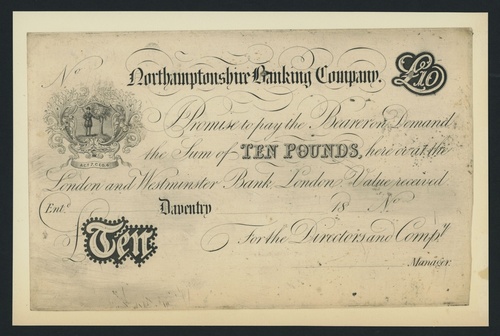 No
Northamptonshire Banking Company.
£10
I Promise to pay the Bearer on Demand
the Sum of TEN POUNDS, here or at the
London and Westminster Bank London Value received
Ent.d Daventry 18 No
£Ten
For the Directors and Compy.
Manager.